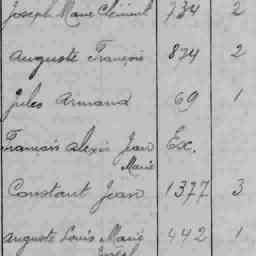 Joseph Marie Clément 734 2
Auguste François 834 2
Jules Armand 69 1
François Alexis Jean Ex.
Marie
Constant Jean 1377 3
Auguste Louis Marie 442 1
Joseph